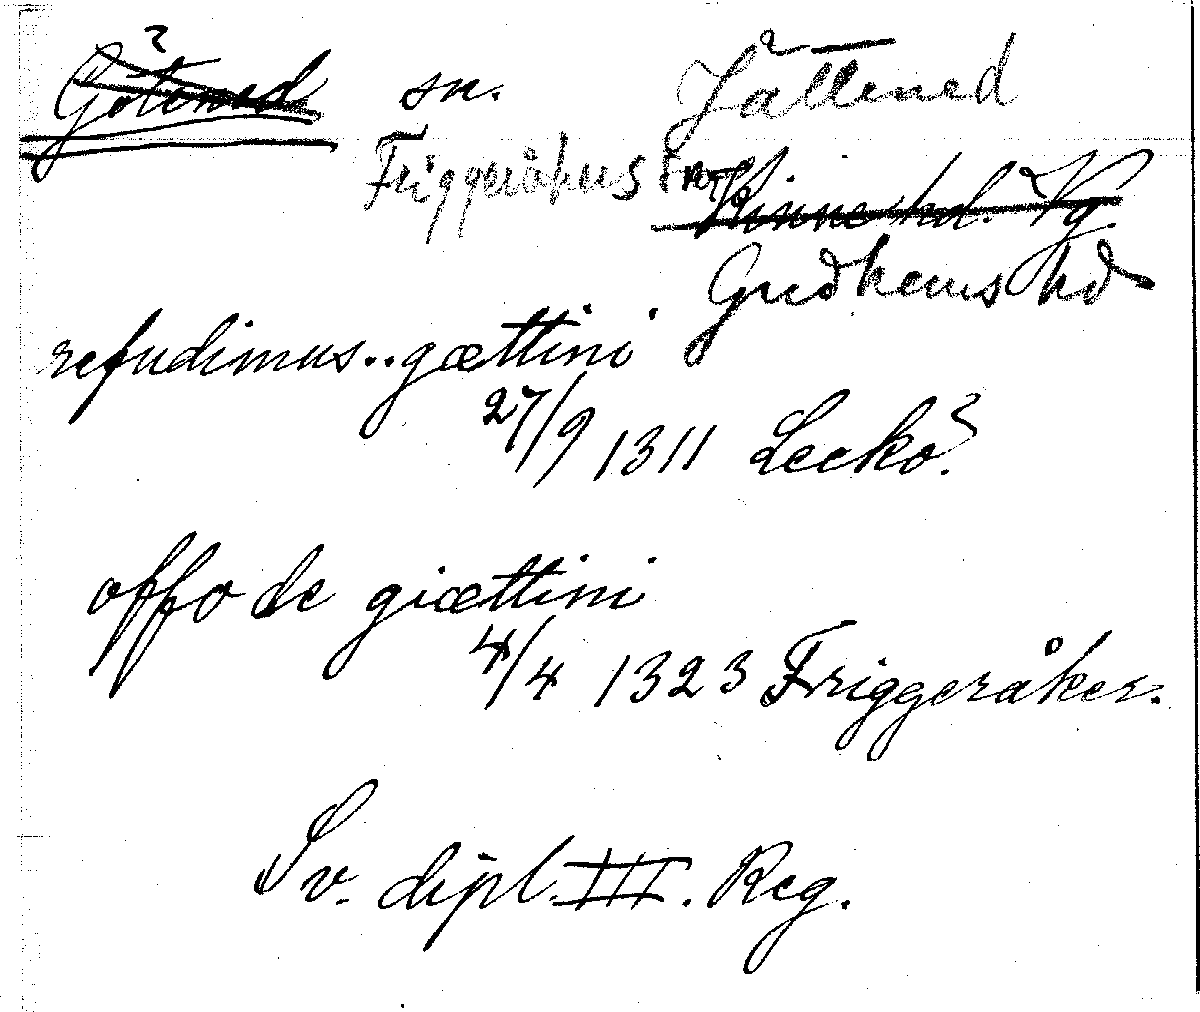 ? Götened sn. Jättened
Friggeråkers sn
Kinne hd. Vg.
Gudhems hd
refudimus.. gættini
27/9 1311 Leckö?
offo de giættini
4/4 1323 Friggeråker.
Sv. dipl. III. Reg.